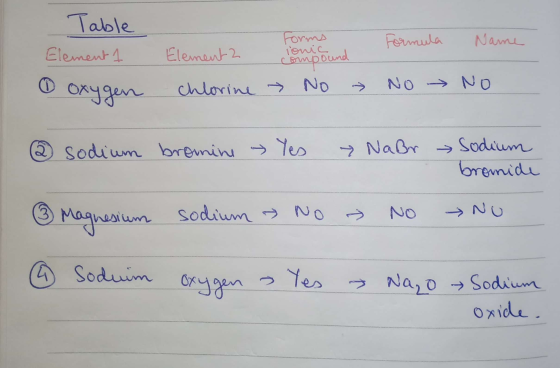 Table
Element 1 Element 2 Forms ionic compound Formula Name
① Oxygen chlorine → No → NO → NO
② Sodium bromine → Yes → NaBr → Sodium bromide
③ Magnesium sodium → NO → NO → NO
④ Sodium oxygen → Yes → Na₂O → Sodium oxide.